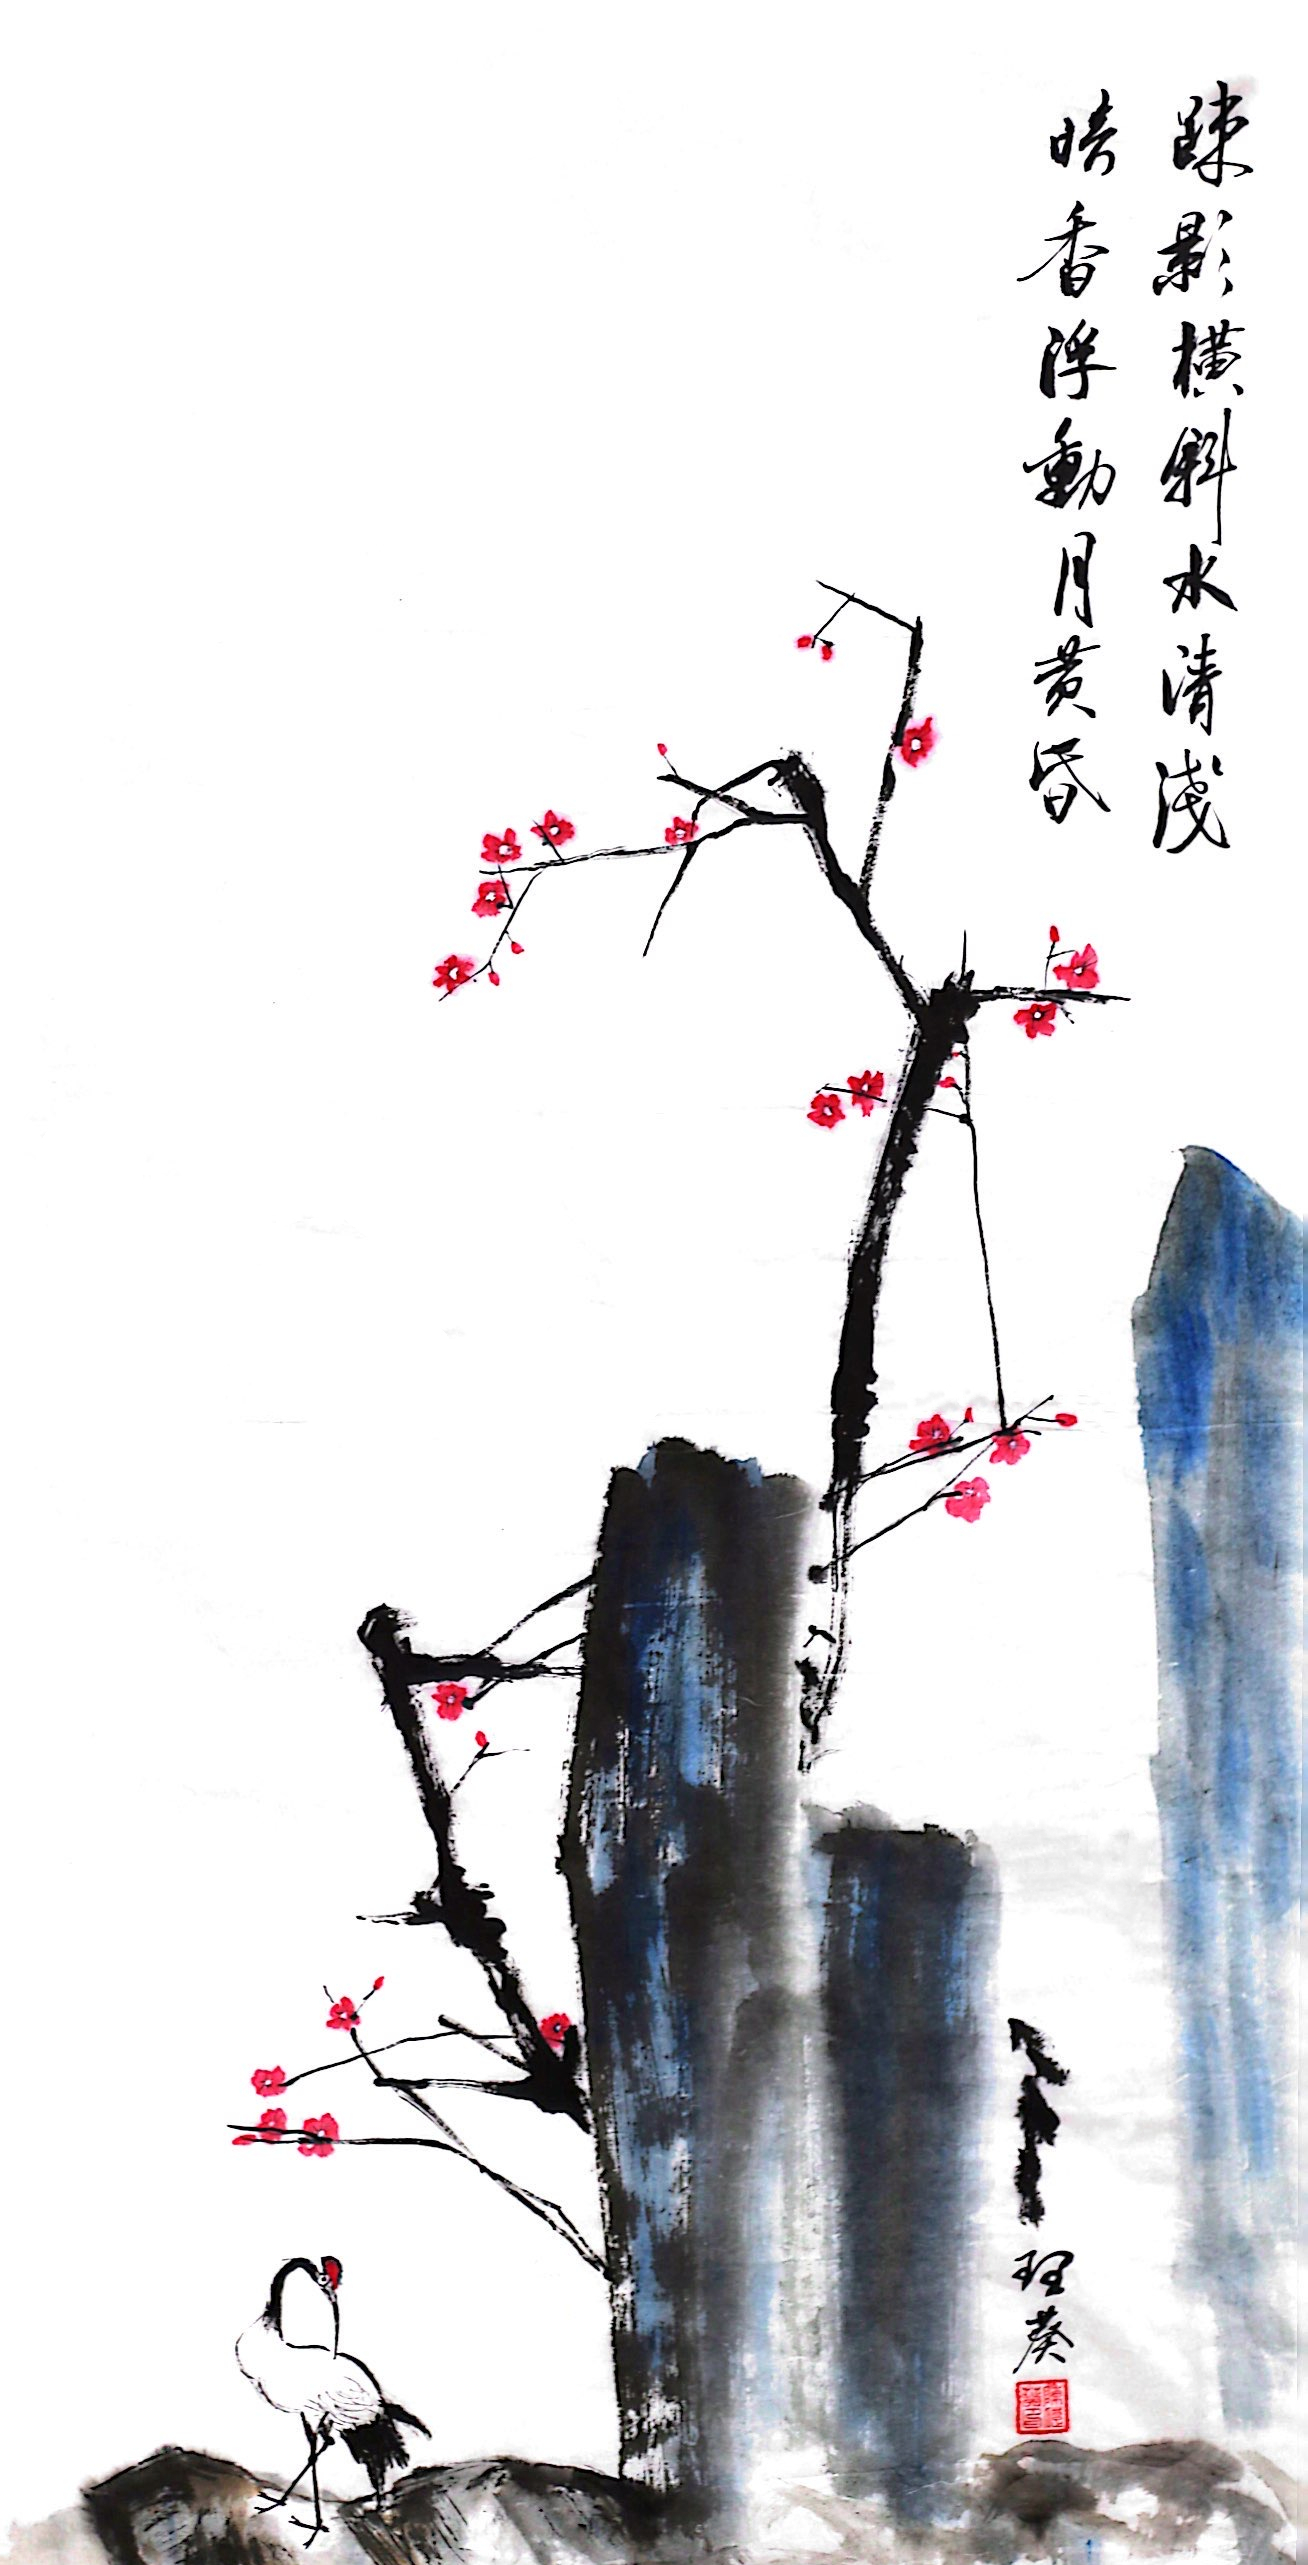 踈影橫斜水清淺
暗香浮動月黃昏
理葵